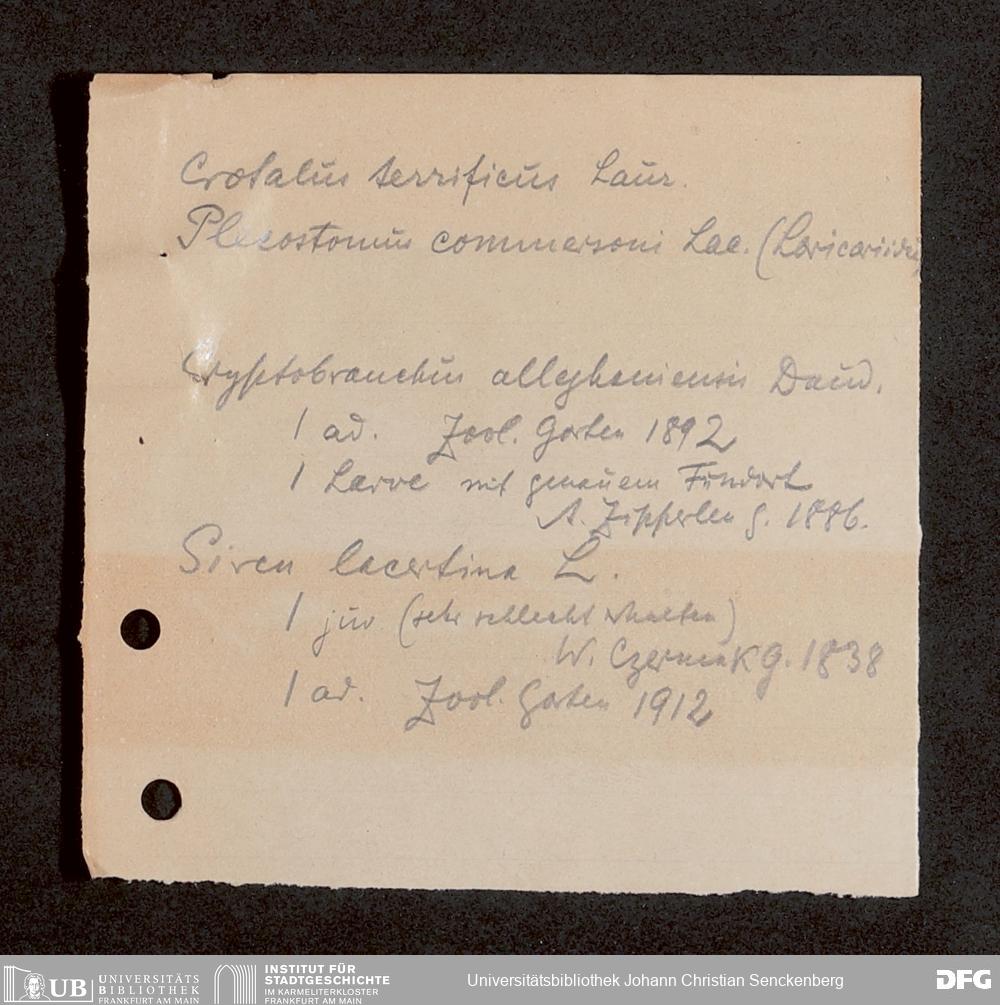 Crotalus terrificus Laur.
Plecostomus commersoni Lac. (Loricariidae)
Cryptobranchus alleghaniensis Daud.
1 ad. Zool. Garten 1892
1 Larve mit genauem Fundort
A. Zipperlen g. 1886.
Siren lacertina L.
1 juv (sehr schlecht erhalten)
W. Czermak g. 1838
1 ad. Zool. Garten 1912
UB UNIVERSITÄTS BIBLIOTHEK FRANKFURT AM MAIN
INSTITUT FÜR STADTGESCHICHTE IM KARMELITERKLOSTER FRANKFURT AM MAIN
Universitätsbibliothek Johann Christian Senckenberg
DFG